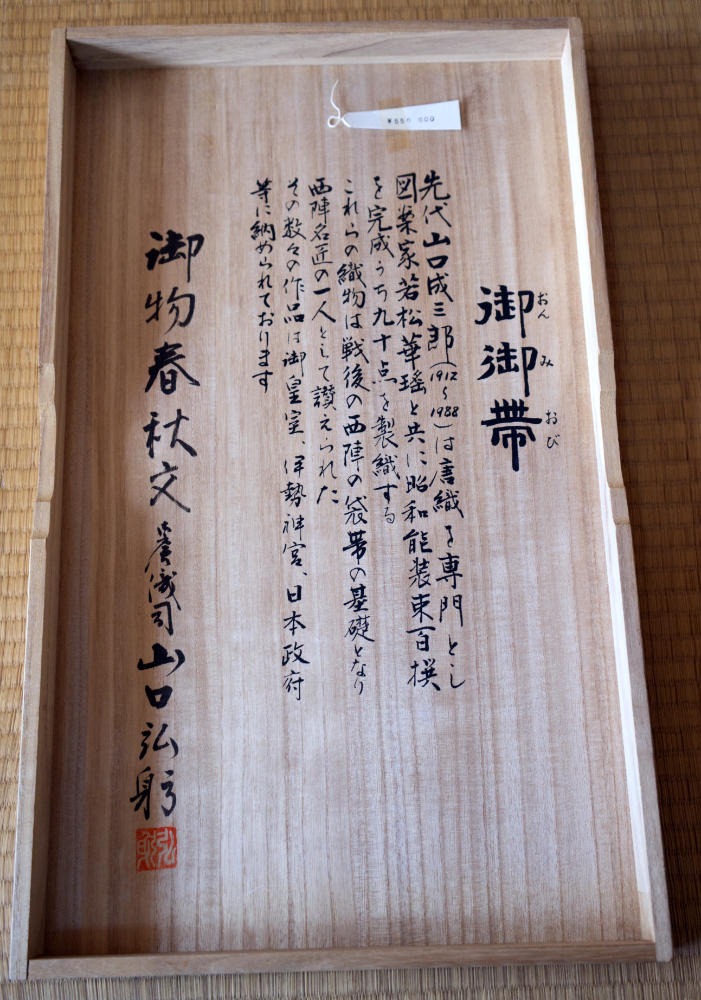 ¥550,000
御御帯
おん み おび
先代山口成三郎(1912~1988)は唐織を専門とし
図案家若松華瑶と共に昭和能装束百撰
を完成うち九十点を製織する
これらの織物は戦後の西陣の袋帯の基礎となり
西陣名匠の一人として讃えられた
その数々の作品は御皇室、伊勢神宮、日本政府
等に納められております
御物春秋文
司 山口弘躬